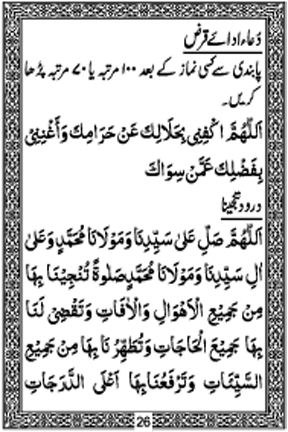 دُعاء ادائے قرض
پابندی سے کسی نماز کے بعد ۱۰۰ مرتبہ یا ۷۰ مرتبہ پڑھا
کریں۔
اَللّٰهُمَّ اكْفِنِىْ بِحَلَالِكَ عَنْ حَرَامِكَ وَاَغْنِنِىْ
بِفَضْلِكَ عَمَّنْ سِوَاكَ
درود تنجینا
اَللّٰهُمَّ صَلِّ عَلٰى سَيِّدِنَا وَمَوْلَانَا مُحَمَّدٍ وَعَلٰى
اٰلِ سَيِّدِنَا وَمَوْلَانَا مُحَمَّدٍ صَلٰوةً تُنْجِيْنَا بِهَا
مِنْ جَمِيْعِ الْاَهْوَالِ وَالْاٰفَاتِ وَتَقْضِىْ لَنَا
بِهَا جَمِيْعَ الْحَاجَاتِ وَتُطَهِّرُنَا بِهَا مِنْ جَمِيْعِ
السَّيِّئَاتِ وَتَرْفَعُنَا بِهَا اَعْلَى الدَّرَجَاتِ
26